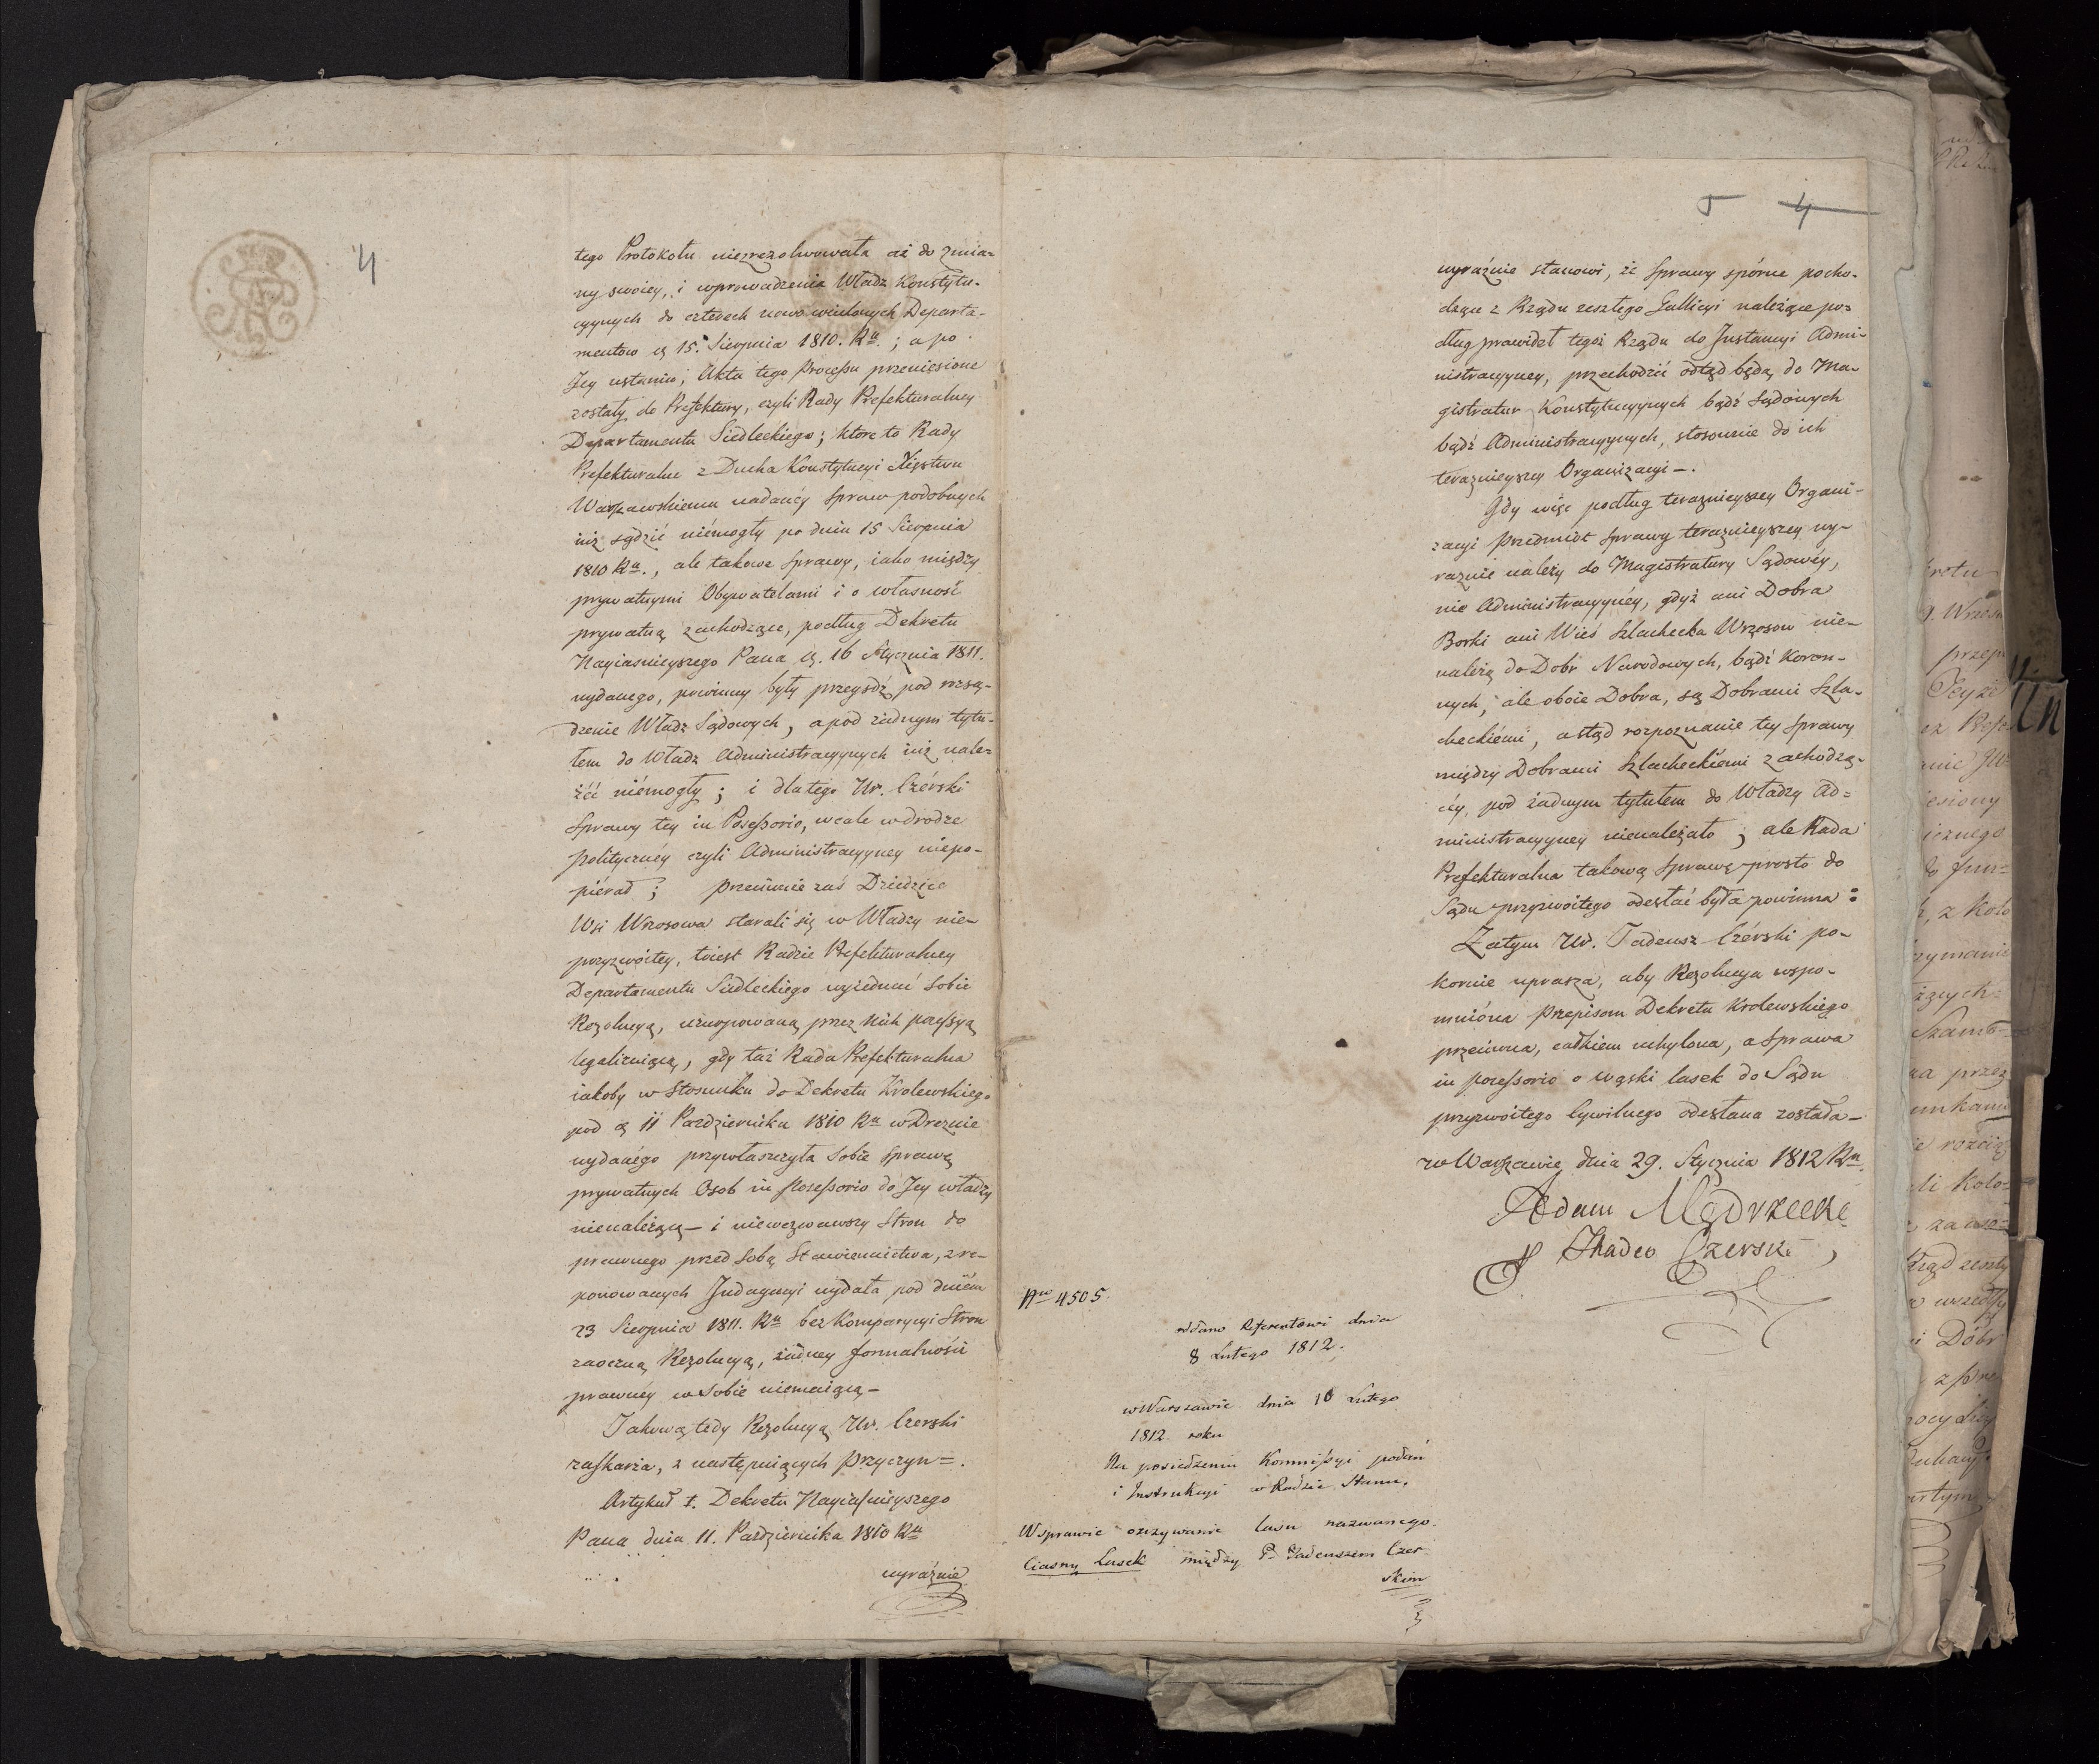 4
tego Protokołu nierezolwowała aż do zmia=
ny swoiey, i wprowadzenia Władz Konstytu-
cyynych do czterech nowo wcielonych Departa-
mentow d. 15. Sierpnia 1810. Ru.; a po
Jey ustaniu; Akta tego Processu przeniesione
zostały do Prefektury, czyli Rady Prefekturalney
Departamentu Siedleckiego; ktore to Rady
Prefekturalne z Ducha Konstytucyi Xięstwu
Warszawskiemu nadanéy spraw podobnych
iuż sądzić niémogły po dniu 15 Sierpnia
1810 Ru., ale takowe Sprawy, iako między
prywatnymi Obywatelami i o własność
prywatną zachodzące, podług Dekretu
Nayiasnieyszego Pana d. 16 Stycznia 1811.
wydanego, powinny były przeyśdź pod rozsą-
dzenie Władz Sądowych, a pod żadnym tytu-
łem do Władz Administracyynych iuż nale-
żéć niémogły; i dlatego Ur. Czérski
Sprawy tey in Possessorio, wcale w drodze
polityczney czyli Administracyyney niepo-
piérał; przeciwnie zaś Dziedzice
Wsi Wrzosowa starali się w Władzy nie-
przyzwoitey, to iest Radzie Prefekturalney
Departamentu Siedleckiego wyiednać sobie
Rezolucyą, uzurpowaną przez Nich possessyą
legalizuiącą, gdy taż Rada Prefekturalna
iakoby w Stosunku do Dekretu Krolewskiego
pod d. 11 Pazdziernika 1810 Ru w Dreznie
wydanégo przywłaszczyła sobie Sprawę
prywatnych Osob in Possessorio do Jey władzy
nienależącą – i niewezwawszy Stron do
prawnego przed Sobą Stawiennictwa, z re-
ponowanych Indagacyi wydała pod dniém
23 Sierpnia 1811. Ru bez Komparycyi Stron
zaoczną Rezolucyą, żadney formalności
prawnéy w Sobie niemaiącą –
Takową tedy Rezolucyą Ur. Czerski
zaskarża, z następuiących Przyczyn =.
Artykuł 1. Dekretu Nayiasnieyszego
Pana dnia 11. Pazdziernika 1810 Ru
wyraźnie
5 4
wyraźnie stanowi, że Sprawy spórne pocho-
dzące z Rządu zeszłego Gallicyi należące po=
dług prawideł tegoż Rządu do Instancyi Admi-
nistracyyney, przechodzić odtąd będą do Ma-
gistratur Konstytucyynych bądź Sądowych
bądź Administracyynych, stosownie do ich
terazniéyszey Organizacyi –.
Gdy więc podług terazniéyszey Organi-
zacyi Przedmiot Sprawy terazniéyszey wy-
raznie należy do Magistratury Sądowéy,
nie Administracyynéy, gdyż ani Dobra
Borki ani Wieś Szlachecka Wrzosow nie-
należą do Dobr Narodowych, bądź Koron-
nych; ale oboie Dobra, są Dobrami Szla-
checkiémi, a stąd rozpoznanie tey Sprawy
między Dobrami Szlacheckiémi zachodzą-
céy, pod żadnym tytułem do Władzy Ad=
ministracyyney nienależało; ale Rada
Prefekturalna takową Sprawę prosto do
Sądu przyzwoitego odesłać była powinna:
Zatym Ur. Tadeusz Czérski po-
kornie uprasza, aby Rezolucya wspo-
mnióna Przepisom Dekretu Krolewskiego
przeciwna, całkiem uchylona, a Sprawa
in possessorio o wąski lasek do Sądu
przyzwoitego Cywilnego odesłana została –
w Warszawie dnia 29. Stycznia 1812 Ru.
Adam Mędrzecki
Thadeo Czerski
Nro 4505.
oddano Referentowi dnia
8 Lutego 1812.
w Warszawie dnia 10 Lutego
1812. roku
Na posiedzeniu Kommissyi podań
i Instrukcyi w Radzie Stanu.
W sprawie o używanie lasu nazwanego
Ciasny Lasek między P. Tadeuszem Czer-
skim